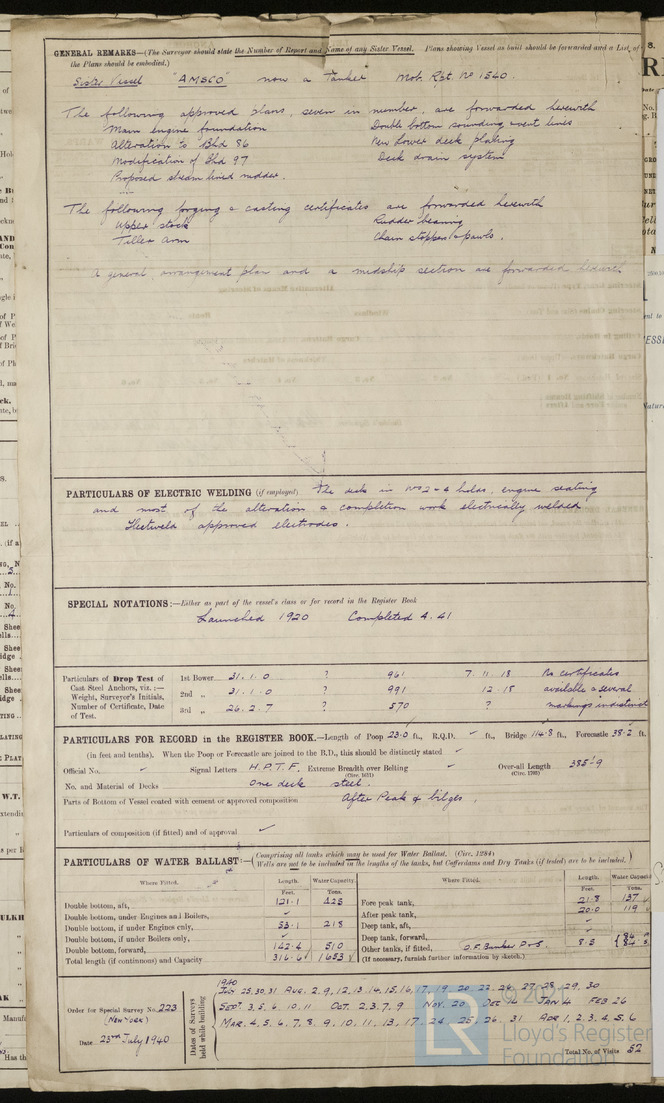 GENERAL REMARKS—(The Surveyor should state the Number of Report and Name of any Sister Vessel. Plans showing Vessel as built should be forwarded and a List of
the Plans should be embodied.)
Sister Vessel "AMSCO" now a Tanker Mob. Rpt. No 1540.
The following approved plans, seven in number, are forwarded herewith
Main engine foundation Double bottom sounding & vent lines
Alteration to Bhd 86 New lower deck plating
Modification of Bhd 97 Deck drain system
Proposed stream lined rudder.
The following forging & casting certificates are forwarded herewith
Upper stock Rudder bearing
Tiller arm Chain stopper & pawls.
A general arrangement plan and a midship section are forwarded herewith
PARTICULARS OF ELECTRIC WELDING (if employed) The deck in nos 2-4 holds, engine seating
and most of the alteration & completion work electrically welded
approved electrodes.
SPECIAL NOTATIONS:—Either as part of the vessel's class or for record in the Register Book
Launched 1920 Completed 4.41
Particulars of Drop Test of 1st Bower 31.1.0 ? 961 7.11.18 No certificates
Cast Steel Anchors, viz.:—
Weight, Surveyor's Initials, 2nd „ 31.1.0 ? 991 12.18 available & several
Number of Certificate, Date 3rd „ 26.2.7 ? 570 ? markings indistinct
of Test.
PARTICULARS FOR RECORD in the REGISTER BOOK.—Length of Poop 23.0 ft., R.Q.D. ✓ ft., Bridge 114.8 ft., Forecastle 38.2 ft.
(in feet and tenths). When the Poop or Forecastle are joined to the B.D., this should be distinctly stated ✓
Official No. ✓ Signal Letters H.P.T.F. Extreme Breadth over Belting ✓ Over-all Length 385'-9
(Circ. 1611) (Circ. 1703)
No. and Material of Decks One deck steel.
Parts of Bottom of Vessel coated with cement or approved composition After Peak & bilges,
Particulars of composition (if fitted) and of approval ✓
PARTICULARS OF WATER BALLAST:—(Comprising all tanks which may be used for Water Ballast. (Circ. 1284)
Wells are not to be included in the lengths of the tanks, but Cofferdams and Dry Tanks (if tested) are to be included.)
Where Fitted. Length. Water Capacity. Where Fitted. Length. Water Capacity
Feet. Tons. Feet. Tons.
Double bottom, aft, 121.1 425 Fore peak tank, 21.8 137
Double bottom, under Engines and Boilers, ✓ After peak tank, 20.0 119
Double bottom, if under Engines only, 53.1 218 Deep tank, aft, ✓
Double bottom, if under Boilers only, ✓ Deep tank, forward, ✓
Double bottom, forward, 142.4 510 Other tanks, if fitted, O.F. Bunker P & S. 8.5 {84 P 84 S
Total length (if continuous) and Capacity 316.6 1653 (If necessary, furnish further information by sketch).
Order for Special Survey No. 223
(New York)
Date 23rd July 1940
Dates of Surveys held while building
1940
July 25,30,31 Aug. 2,9,12,13,14,15,16,17,19,20,22,26,27,28,29,30
Sept. 3,5,6,10,11 Oct. 2,3,7,9 Nov. 20 Dec Jan 4 Feb 26
Mar. 4,5,6,7,8,9,10,11,13,17,24,25,26,31 Apr 1,2,3,4,5,6
Total No. of Visits 52
LR
Lloyd's Register
Foundation